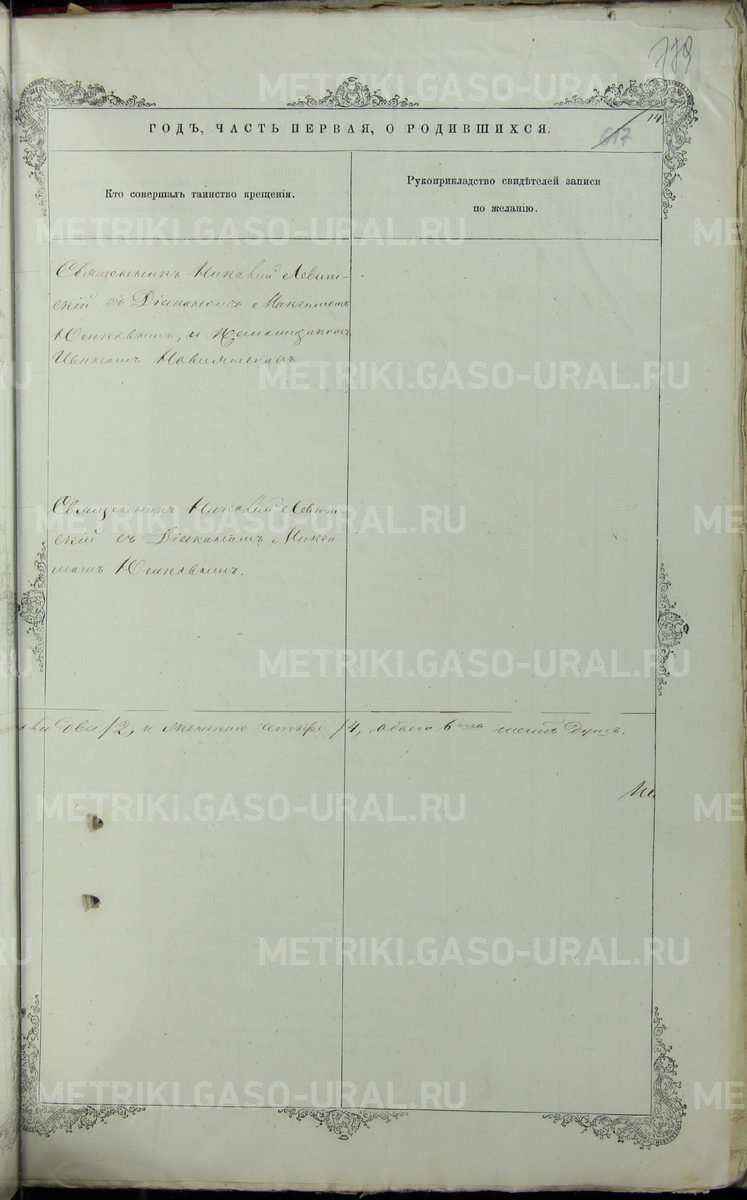 779
14
617
ГОДЪ, ЧАСТЬ ПЕРВАЯ, О РОДИВШИХСЯ.
Кто совершалъ таинство крещенія.
Рукоприкладство свидѣтелей записи
по желанію.
Священникъ Николай Левит-
скій съ Діакономъ Максимомъ
Юшковымъ, и
Священникъ Николай Левит-
скій съ Діакономъ Макси
момъ Юшковымъ.
два /2, и женскаго четыре /4, обоего шесть душъ.
METRIKI.GASO-URAL.RU